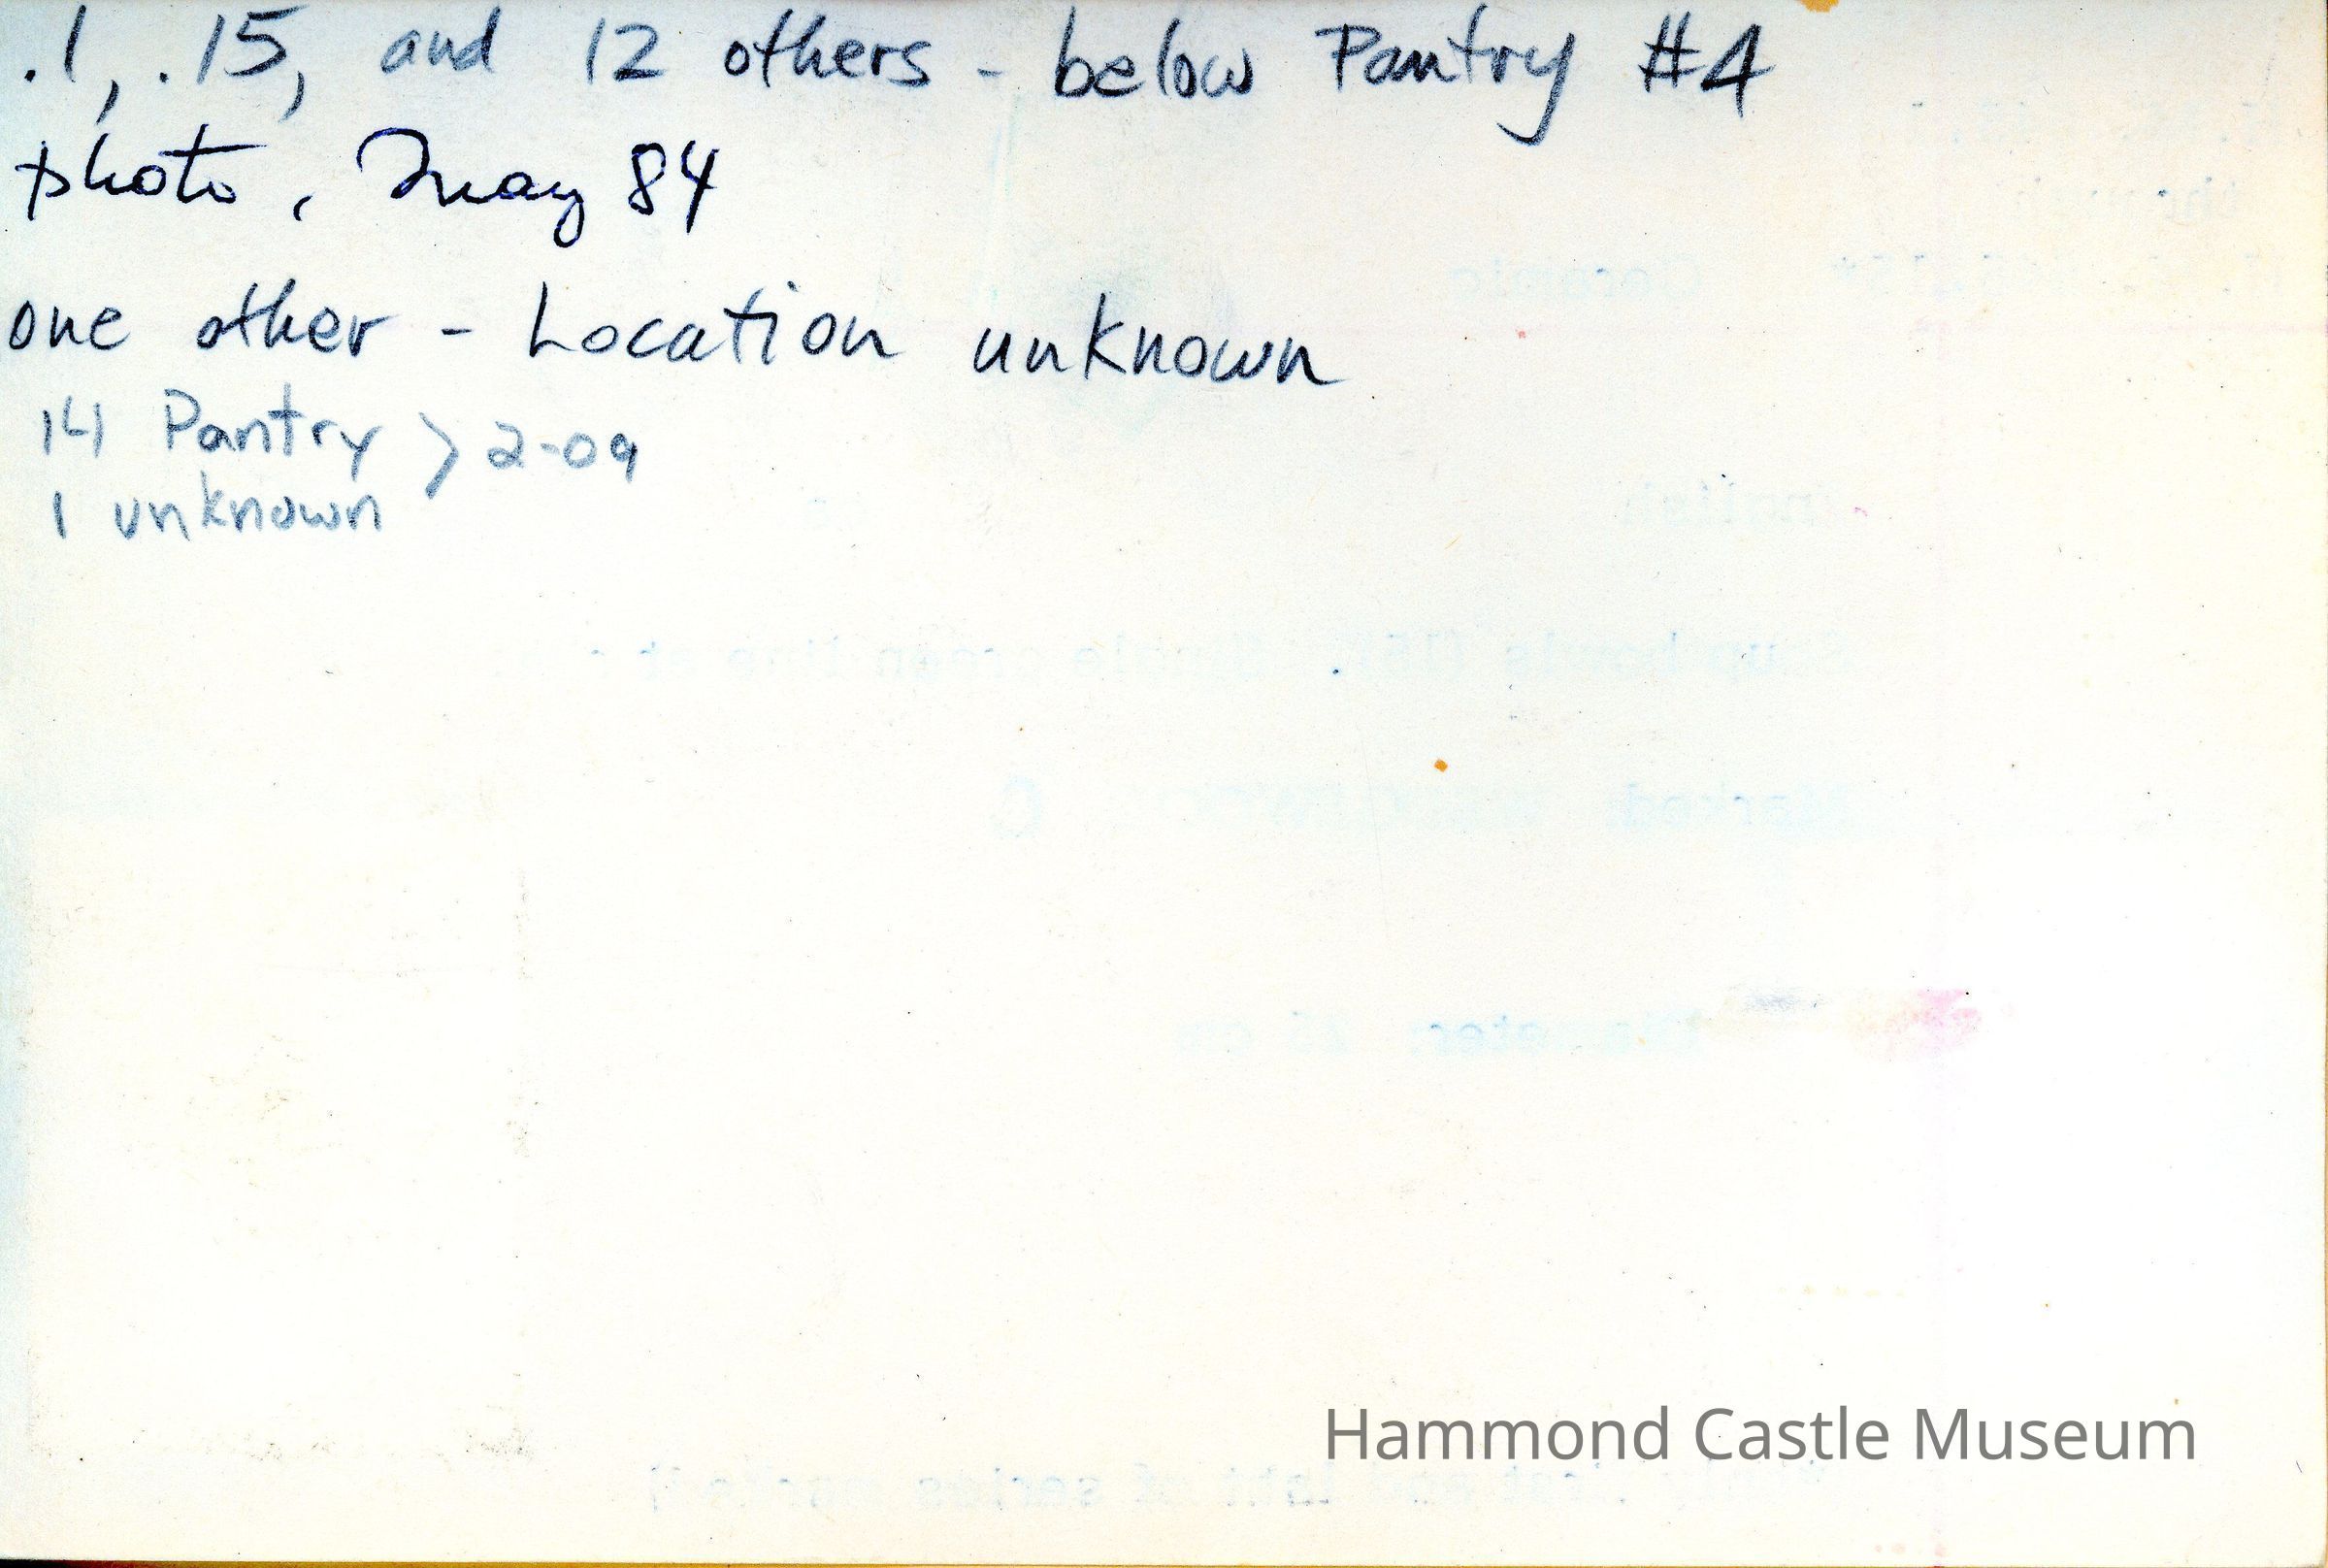 .1, .15, and 12 others - below Pantry #4
photo, May 84
one other - Location unknown
14 Pantry > 2-09
1 unknown
Hammond Castle Museum